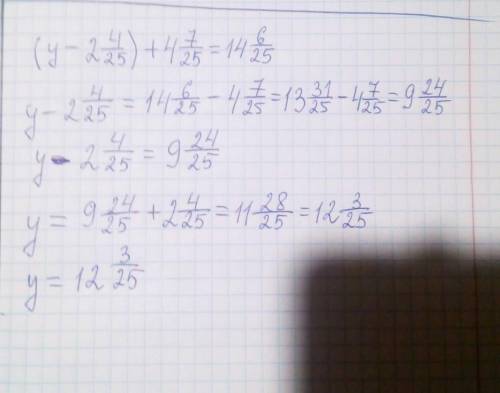 (y - 2 4/25) + 4 7/25 = 14 6/25
y - 2 4/25 = 14 6/25 - 4 7/25 = 13 31/25 - 4 7/25 = 9 24/25
y - 2 4/25 = 9 24/25
y = 9 24/25 + 2 4/25 = 11 28/25 = 12 3/25
y = 12 3/25